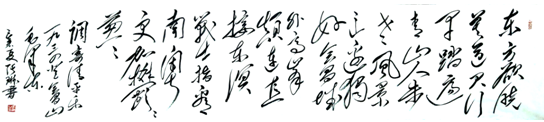 东方欲晓
莫道君行
早踏遍
青山人未
老风景
这边独
好会昌城
外高峰
颠连直
接东溟
战士指看
南粤
更加郁々
葱々
调寄清平乐
毛泽东